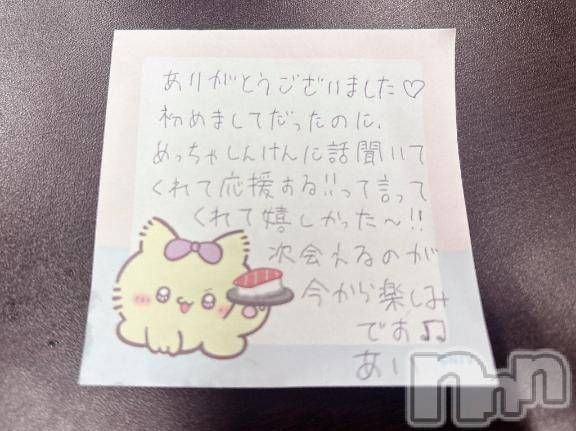 ありがとうございました♡
初めましてだったのに、
めっちゃしんけんに話聞いて
くれて応援する!!って言って
くれて嬉しかった〜!!
次会えるのが
今から楽しみ
です♫
あい
nnn